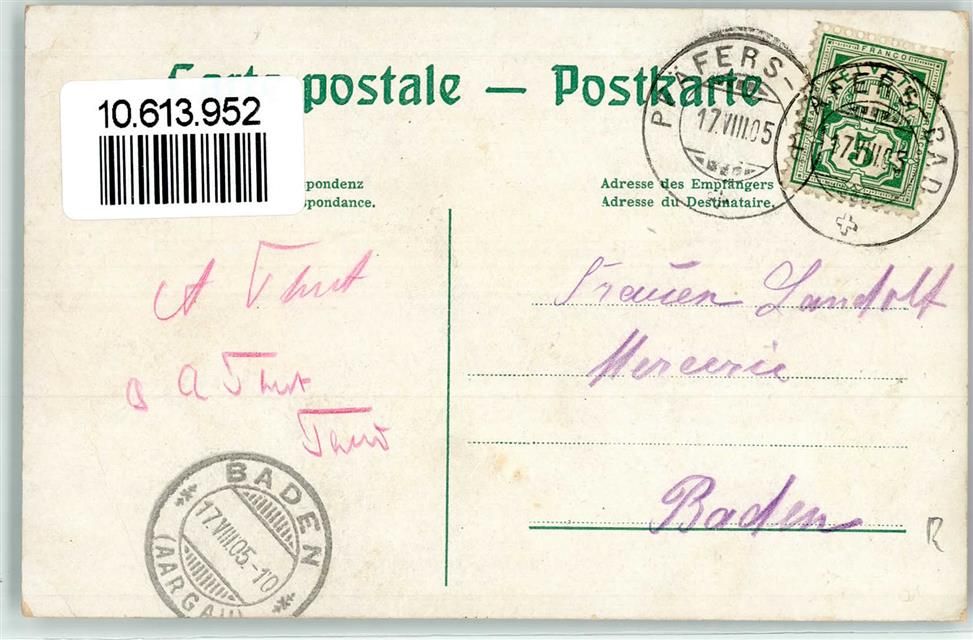 Carte postale — Postkarte
10.613.952
pondenz
spondance.
Adresse des Empfängers
Adresse du Destinataire.
PFÄFERS-
17.VIII.05
FRANCO
HELVETIA
5
PFÄFERS-BAD
17.VIII.05
A Thut
A Thut
Frauen Landolt
Mercerie
Baden
BADEN
17.VIII.05.-10
(AARGAU)
R